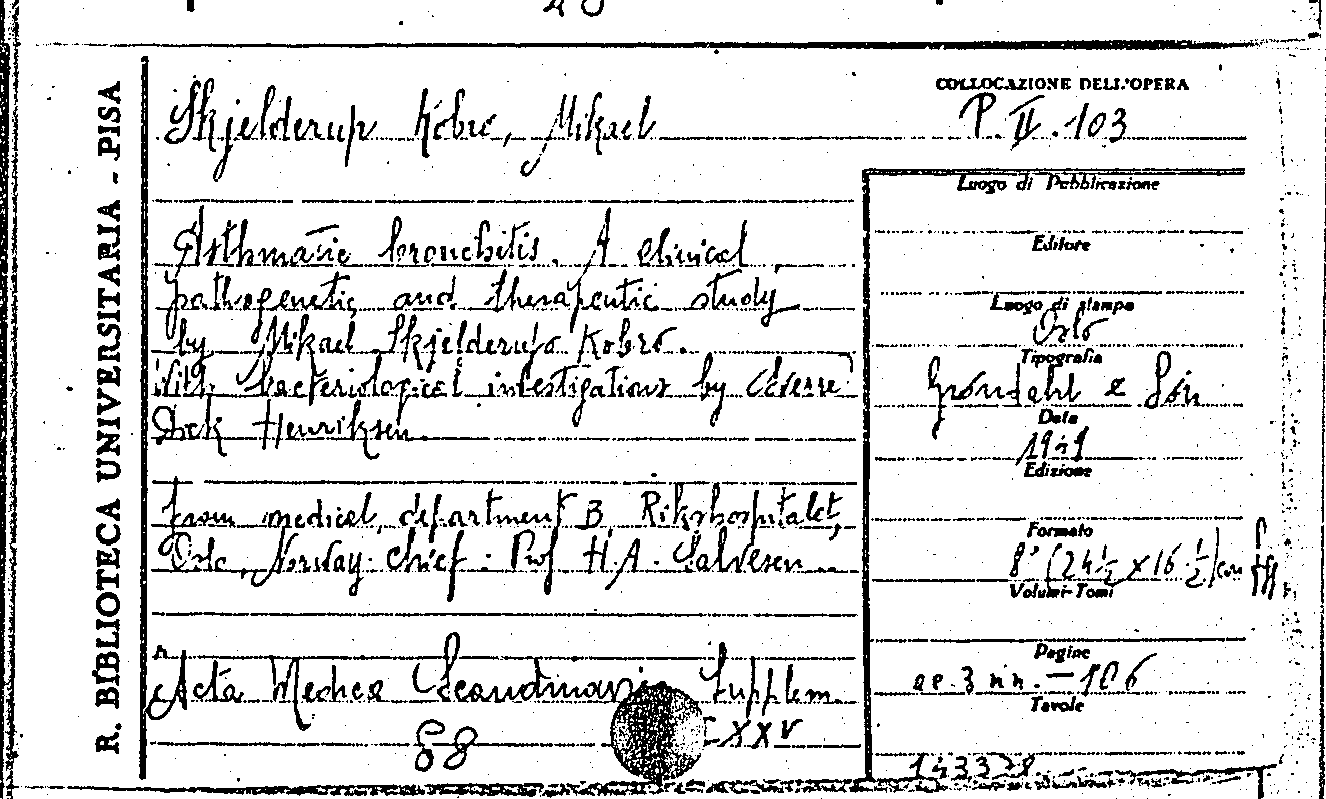 R. BIBLIOTECA UNIVERSITARIA - PISA
Skjelderup Kobro, Mikael
COLLOCAZIONE DELL'OPERA
P. II. 103
Asthmatic bronchitis. A clinical,
pathogenetic, and therapeutic study
by Mikael Skjelderup Kobro.
With bacteriological investigations by Sverre
Dick Henriksen.
from medical department B, Rikshospitalet,
Oslo, Norway. Chief: Prof H.A. Salvesen
Acta Medica Scandinavica Supplem.
CXXV
68
Luogo di Pubblicazione
Editore
Luogo di stampa
Oslo
Tipografia
Gröndahl & Sön
Data
Edizione
Formato
8° (24½ x 16½) con
Volumi-Tomi
Pagine
3 nn. - 186
Tavole